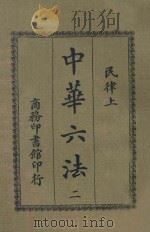 民律上
中華六法 二
商務印書館印行
www.mtoou.info mtoou.com